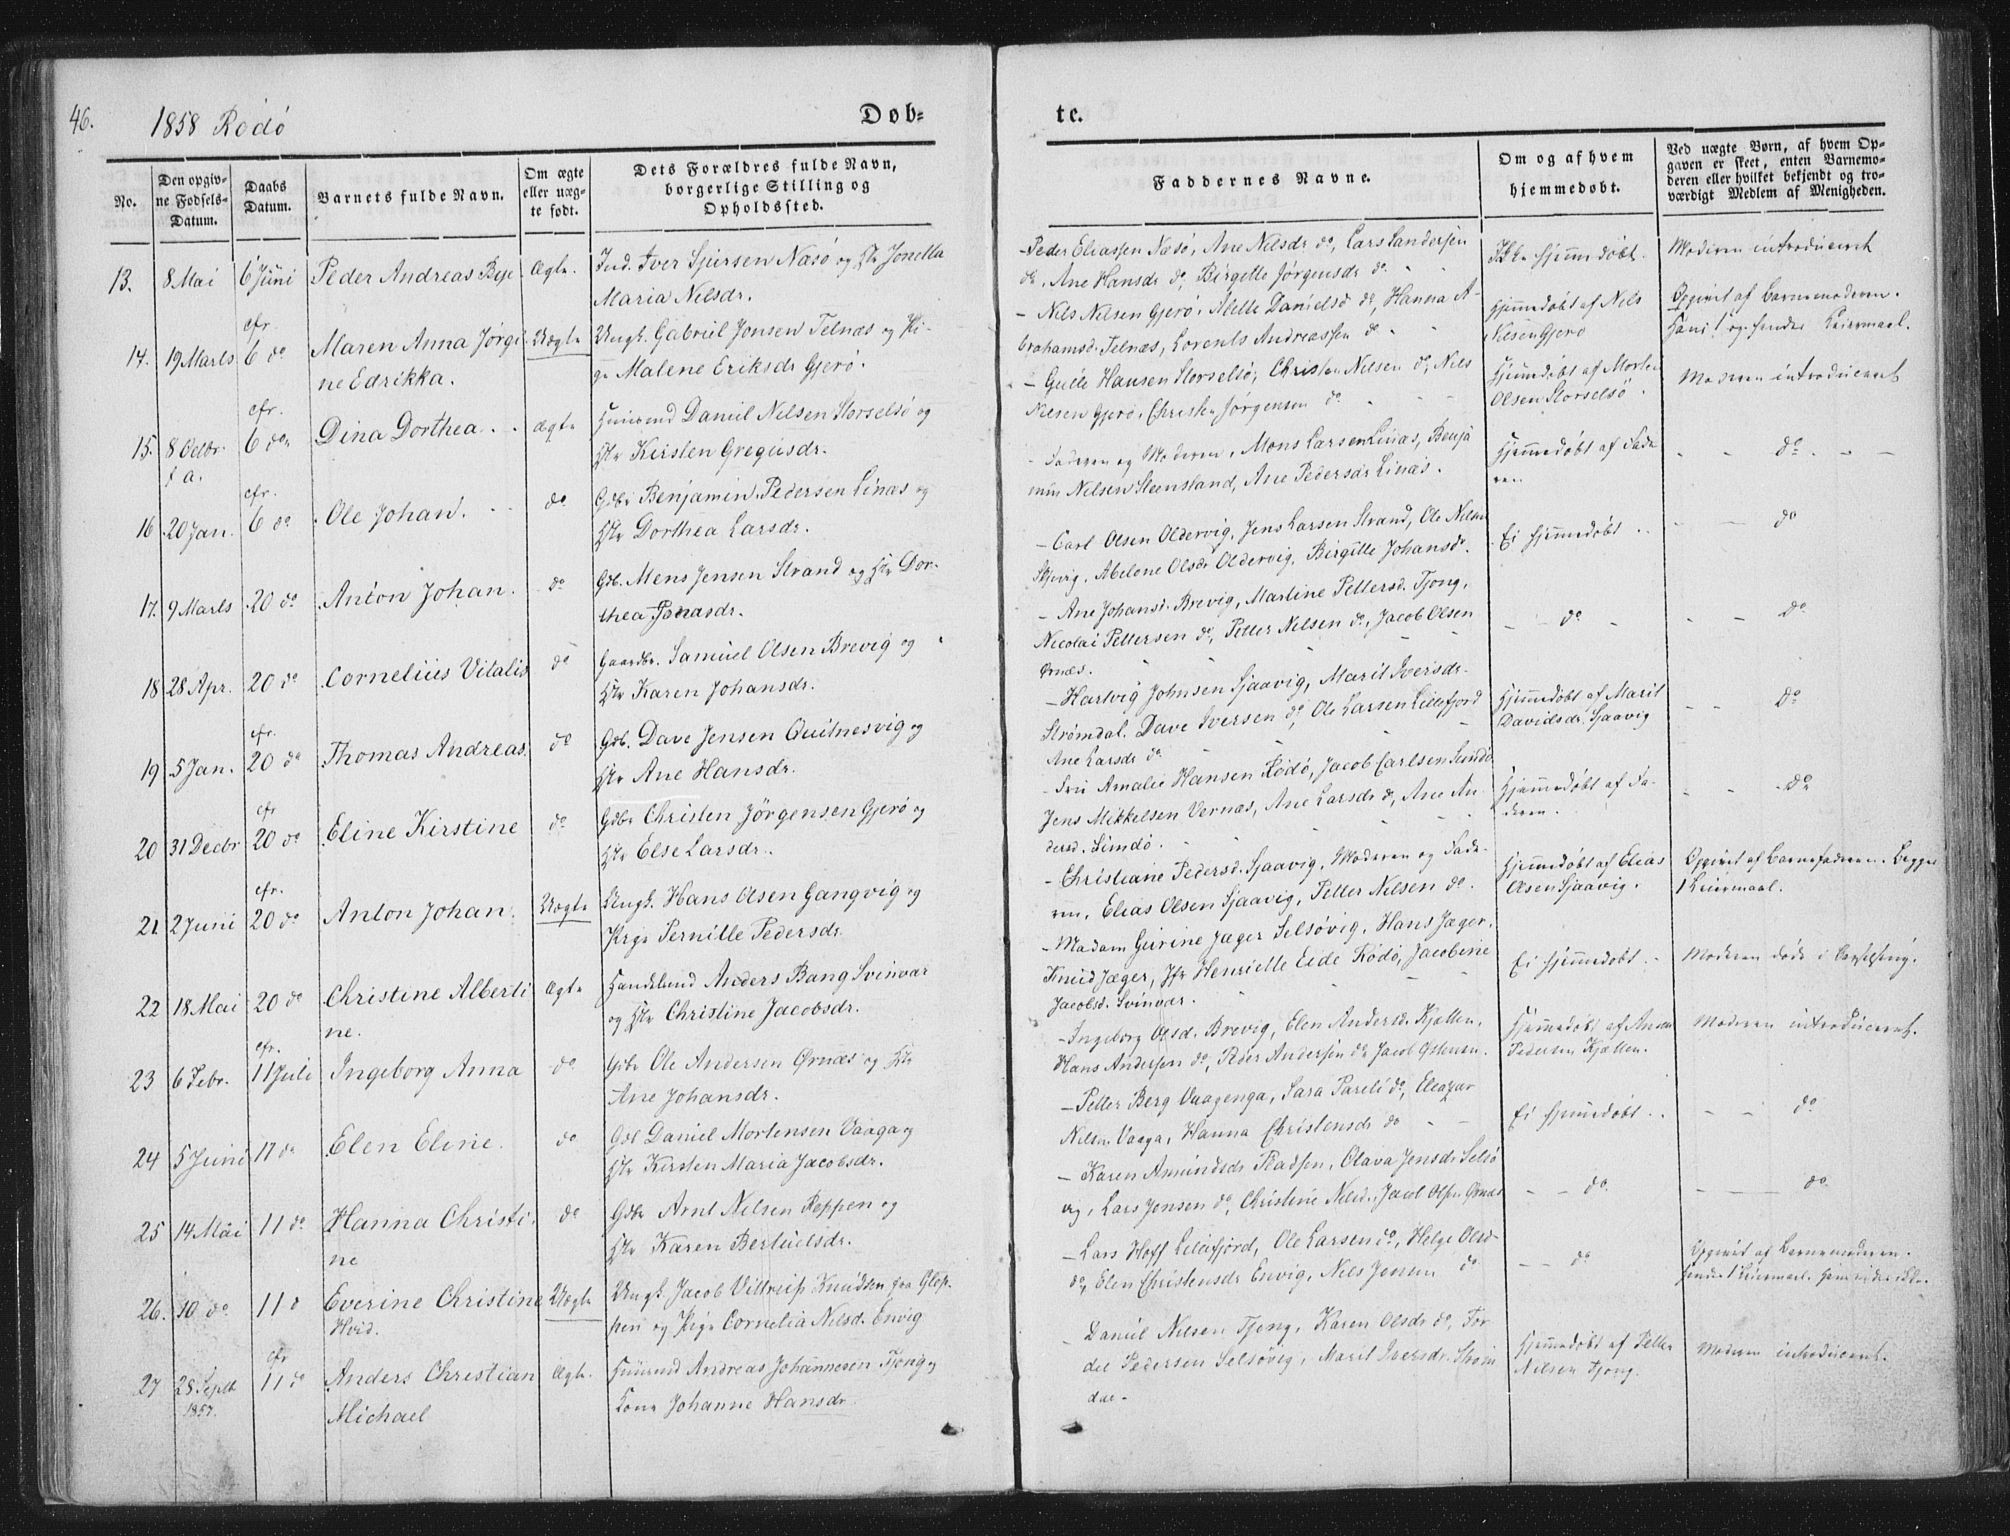 46.
1858 Rödö
Dob-
te.
No.
Den opgiv-
ne Fodsels-
Datum.
Daabs
Datum.
Barnets fulde Navn.
Om ægte
eller uæg-
te født.
Dets Forældres fulde Navn,
borgerlige Stilling og
Opholdssted.
Faddernes Navne.
Om og af hvem
hjemmedøbt.
Ved uægte Børn, af hvem Op-
gaven er skeet, enten Barnemo-
deren eller hvilket bekjendt og tro-
værdigt Medlem af Menigheden.
13. 8 Mai 6 Juni Peder Andreas Ægte. Ind. Iver Sjursen Næsö og Jonetta
Maria Nilsdr.
-Peder Eliassen Næsö, Ane Nilsdr do, Lars Sandersen
do. Ane Hansdr do, Birgitte Jørgensdr do.
Ikke hjemmedøbt.
Moderen introduceret
14. 19 Marts cfr. 6 do Maren Anna Jørgi
ne Edrikka.
Uægte Ungk. Gabriel Jonsen Telnæs og Pi-
ge Malene Eriksdr Gjerö.
- Nils Nilsen Gjerö, Mette Danielsd do, Hanna A-
brahamsd. Telnæs, Lorents Andreassen do
hjemmedøbt af Nils
Nilsen Gjerö
Opgivet af Barnemoderen.
Hans 1 og hendes Leiermaal.
15. 8 Octbr.
f. a.
cfr. 6 do Dina Dorthea. ægte Daniel Nilsen Storselsö og
Kirsten Gregusdr.
- Hansen Storselsö, Christen Nilsen do, Nils
Nilsen Gjerö, Christen Jørgensen do
Hjemmedøbt af Morten
Olsen Storselsö.
Moderen introduceret
16 20 Jan. cfr. 6 do Ole Johan. do Gdbr Benjamin Pedersen Linæs og
Dorthea Larsdr.
- Faderen og Moderen, Mons Larsen Linæs, Benja
min Nilsen Steensland, Ane Pedersdr Linæs.
Hjemmedøbt af Fade
ren.
do
17. 9 Marts 20 do Anton Johan. do Gdb. Mons Jensen Strand og Dor-
thea Jonasdr.
- Carl Olsen Oldervig, Jens Larsen Strand, Ole Nilsen
Abelone Olsdr Oldervig, Birgitte Johansd.
Ei hjemmedøbt
do
18 28 Apr. 20 do Cornelius Vitalis do Gaardbr. Samuel Olsen Brevig og
Karen Johansdr.
- Ane Johansd. Brevig, Martine Pettersd. Tjong,
Nicolai Pettersen do, Petter Nilsen do, Jacob Olsen
Ørnæs.
do
do
19 5 Jan. cfr. 20 do Thomas Andreas. do Gdb. Dave Jensen Quitnesvig og
Ane Hansdr.
- Hartvig Johnsen Sjaavig, Marit Iversdr.
Strømdal. Dave Iversen do, Ole Larsen Lillefjord
Ane Larsdr do
Hjemmedøbt af Marit
Davidsdr. Sjaavig
do
20 31 Decbr cfr 20 do Eline Kirstine do Gdbr Christen Jørgensen Gjerö og
Else Larsdr.
- Amalie Hansen Rödö, Jacob Carlsen
Jens Mikkelsen Vernæs, Ane Larsdr do, Ane An
dersd.
Hjemmedøbt af Fa-
deren.
do
21 2 Juni cfr. 20 do Anton Johan. Uægte Ungk. Hans Olsen Gangvig og
Pige Pernille Pedersdr
- Christiane Pedersd. Sjaavig, Moderen og Fade-
ren, Elias Olsen Sjaavig, Petter Nilsen do.
Hjemmedøbt af Elias
Olsen Sjaavig.
Opgivet af Barnefaderen. Begges
1 Leiermaal.
22 18 Mai 20 do Christine Alberti
ne.
ægte Anders Bang Svinvær
og Christine Jacobsdr.
- Madam Gurine Jæger Selsövig, Hans Jæger,
Knud Jæger, Jfr Henriette Eide Rödö, Jacobine
Jacobsd. Svinvær.
Ei hjemmedøbt
Moderen døde i Barselseng.
23 6 Febr. cfr. 11 Juli Ingeborg Anna do Gdbr Ole Andersen Ørnæs og
Ane Johansdr.
- Ingeborg Olsd. Brevig, Elen Andersd. Kjelten,
Hans Andersen do, Peder Andersen do Jacob
Hjemmedøbt af
Pedersen Kjelten.
Moderen introduceret.
24 5 Juni 11 do Elen Eline. do Gdb Daniel Mortensen Vaaga og
Kirsten Maria Jacobsdr.
- Petter Berg Vaagenga, Sara Pareli do, Eleazar
Nilsen Vaaga, Hanna Christensdr do
Ei hjemmedøbt
do
25 14 Mai 11 do Hanna Christi
ne
do Gdbr Arnt Nilsen Reppen og
Karen Bertuelsdr.
- Karen Amundsdr Pladsen, Olava Jensdr Selsö
vig, Lars Jensen do, Christine Nilsd., Jacob Olsen Ørnæs
do
do
26. 10 do 11 do Everine Christine
Hvid.
Uægte Ungk. Jacob Viltrup Knudsen fra
og Pige Cornelia Nilsd. Envig
- Lars Hoff Lillefjord, Ole Larsen do, Helge Olsd-
do, Elen Christensdr Envig, Nils Jensen do
do
Opgivet af Barnemoderen.
hendes 1 Leiermaal
27 28 Septbr
1857.
cfr 11 do Anders Christian
Michael
Ægte. Andreas Johannesen Tjong og
Kone Johanne Hansdr
- Daniel Nilsen Tjong, Karen Olsdr do, Tor
del Pedersen Selsövig, Marit Iversdr. Strøm
dal-
Hjemmedøbt af Petter
Nilsen Tjong.
Moderen introduceret.